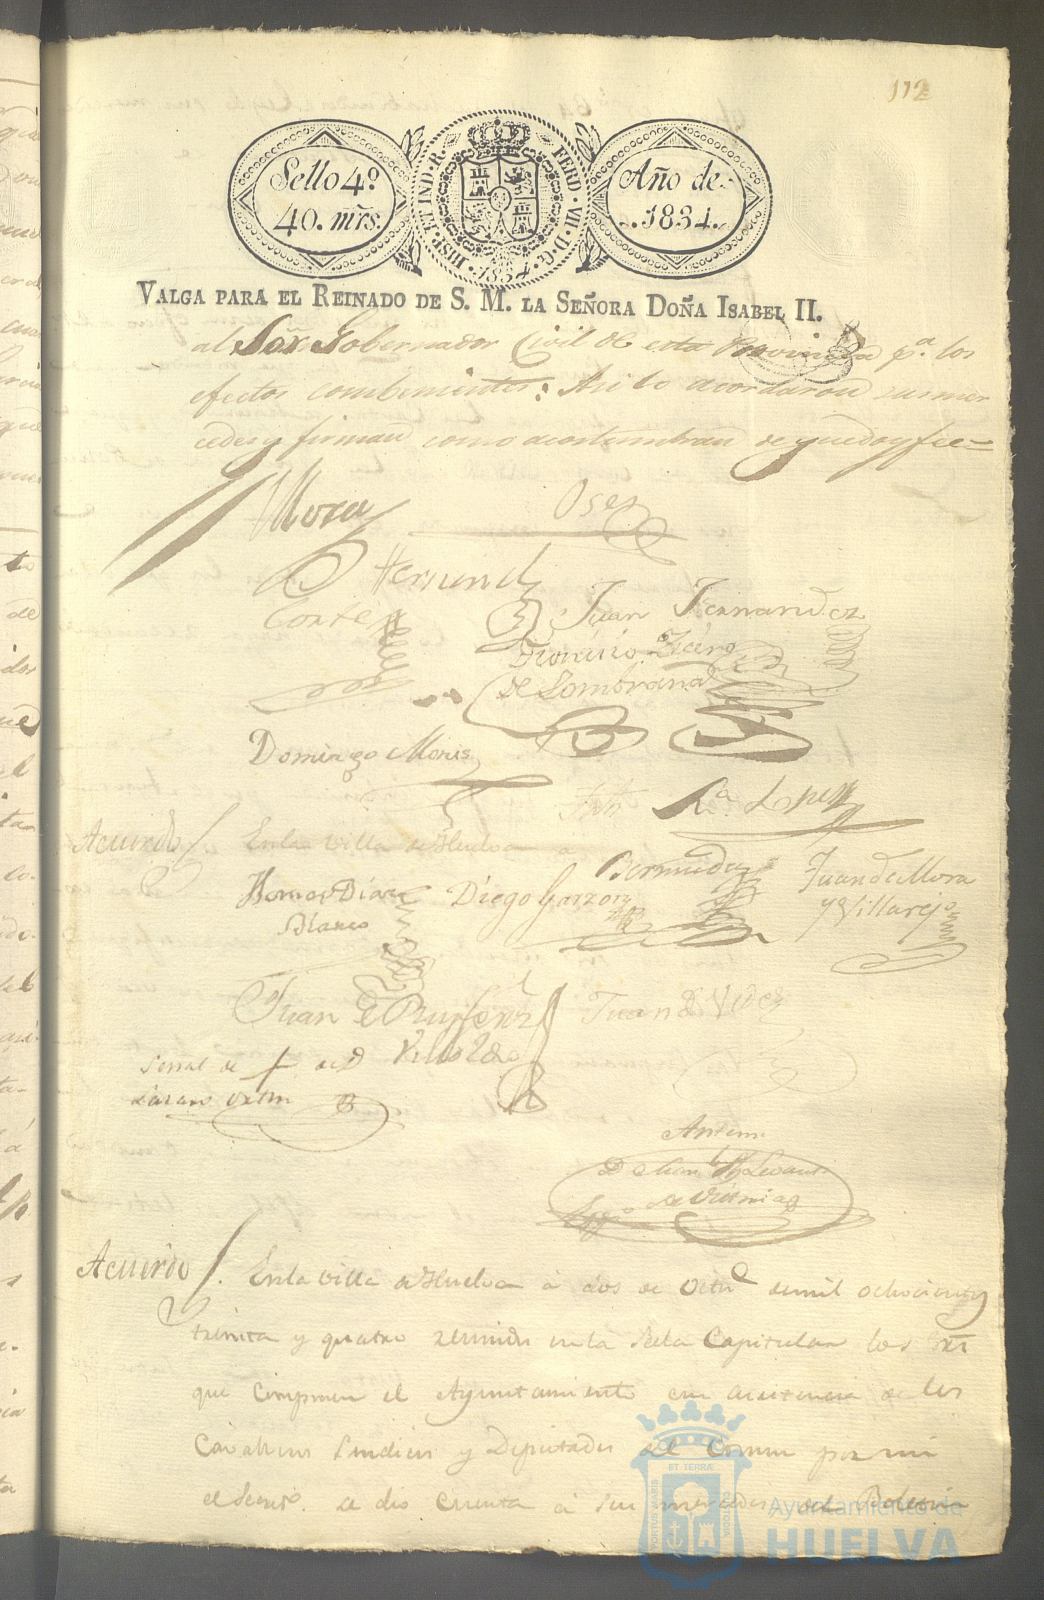 112
Sello 4º
40. mrs.
HISP. ET IND. R.
FERD. VII. D. G.
1834.
Año de
1834.
VALGA PARA EL REINADO DE S. M. LA SEÑORA DOÑA ISABEL II.
al Sor Gobernador Civil de esta Provincia pª los
efectos combenientes: Asi lo acordaron sus mer
cedes y firman como acostumbran de que doy fee=
Mora
Oses
Hernand
Corte
Juan Fernandez
de Zombrana
Domingo Mores
Lopez
Acuerdo En la villa de Huelva a
Bermudez
Juan de Mora
y Villarejo
Diaz
Blanco
Diego Garzon
Juan de
Juan de
Señal de + de D
Lazaro
Antem
de
Acuerdo En la villa de Huelva à dos de Octue de mil ochocientos
treinta y quatro reunidos en la Sala Capitular los Sres
que componen el Ayuntamiento con asistencia de los
Cavalleros Sindicos y Diputados del Comun por mi
el Secreto. se dio cuenta à sus mercedes del Boletin
PORTUS MARIS
ET TERRÆ
CUSTODIA
Ayuntamiento de
HUELVA